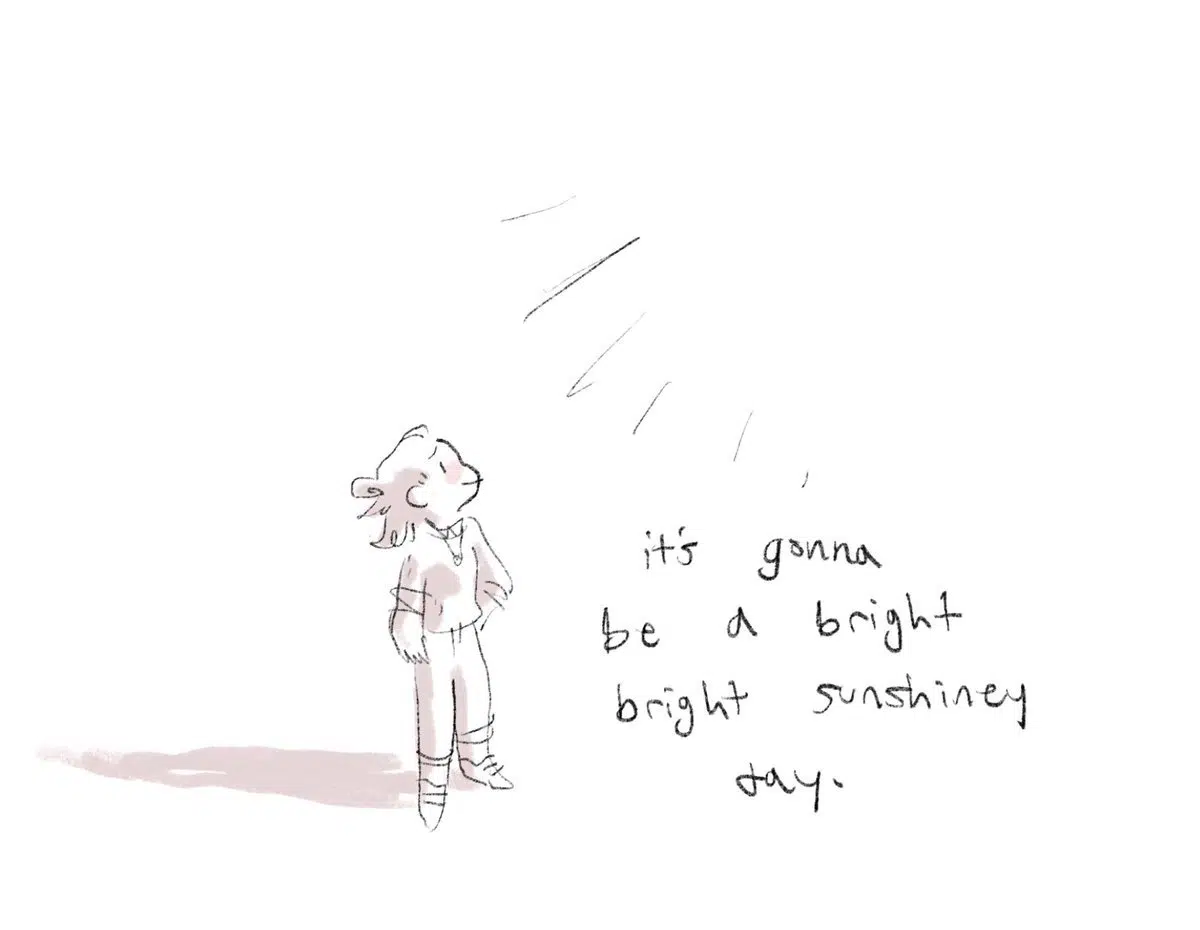 it's gonna
be a bright
bright sunshiney
day.